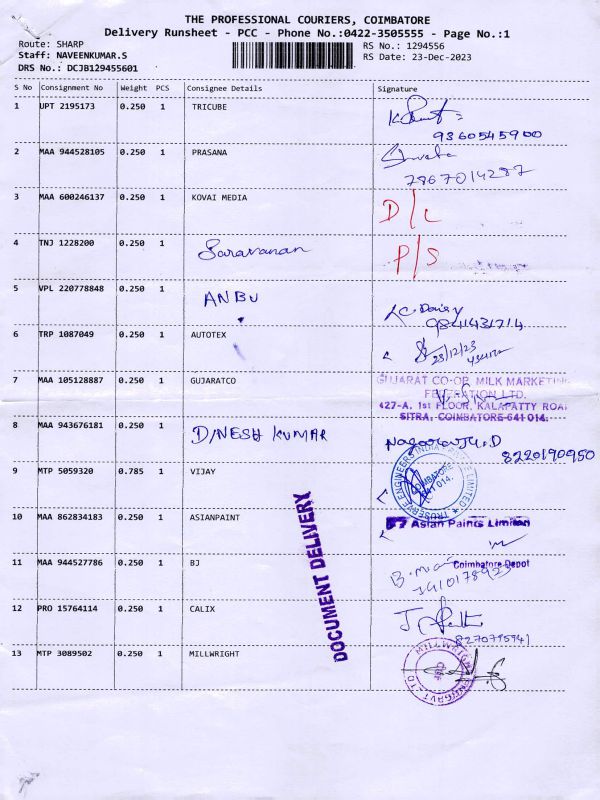 THE PROFESSIONAL COURIERS, COIMBATORE
Delivery Runsheet - PCC - Phone No.:0422-3505555 - Page No.:1
Route: SHARP
RS No.: 1294556
Staff: NAVEENKUMAR.S
RS Date: 23-Dec-2023
DRS No.: DCJB129455601
S No Consignment No Weight PCS Consignee Details Signature
1 UPT 2195173 0.250 1 TRICUBE
9360545900
2 MAA 944528105 0.250 1 PRASANA
7867014287
3 MAA 600246137 0.250 1 KOVAI MEDIA D/L
4 TNJ 1228200 0.250 1 Saravanan P/S
5 VPL 220778848 0.250 1 ANBU
9841431714
6 TRP 1087049 0.250 1 AUTOTEX
23/12/23
7 MAA 105128887 0.250 1 GUJARATCO GUJARAT CO-OP. MILK MARKETING
FEDERATION LTD.
427-A, 1st FLOOR, KALAPATTY ROAD
SITRA, COIMBATORE-641 014.
8 MAA 943676181 0.250 1 DINESH KUMAR
8220190950
9 MTP 5059320 0.785 1 VIJAY
TRUSERVE ENGINEERS INDIA PRIVATE LIMITED
COIMBATORE
641 014.
10 MAA 862834183 0.250 1 ASIANPAINT Asian Paints Limited
Coimbatore Depot
11 MAA 944527786 0.250 1 BJ
12 PRO 15764114 0.250 1 CALIX
13 MTP 3089502 0.250 1 MILLWRIGHT
DOCUMENT DELIVERY